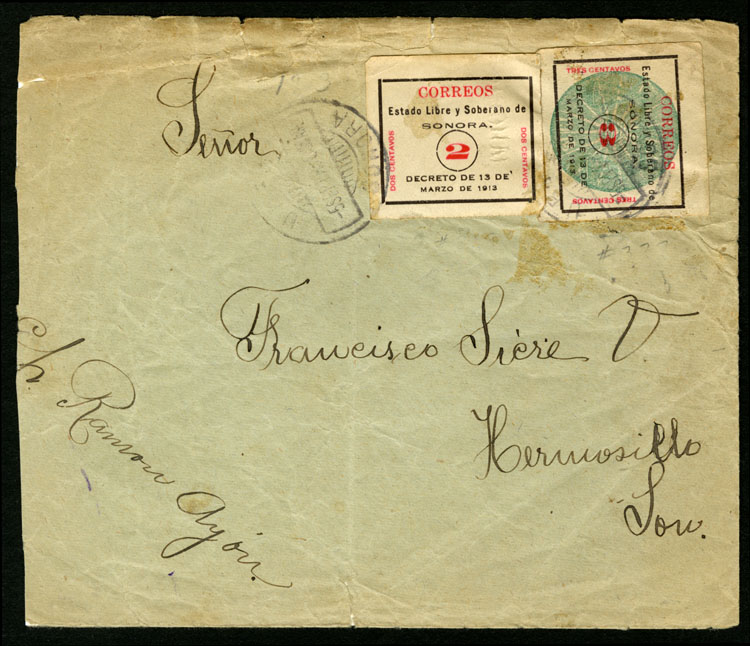 Señor
CORREOS
Estado Libre y Soberano de
SONORA.
DOS CENTAVOS
2
DOS CENTAVOS
DECRETO DE 13 DE
MARZO DE 1913
TRES CENTAVOS
CORREOS
Estado Libre y Soberano de
SONORA.
3
DECRETO DE 13 DE
MARZO DE 1913
TRES CENTAVOS
Francisco Sicre V
Hermosillo
Son.
Ramon Ayón.